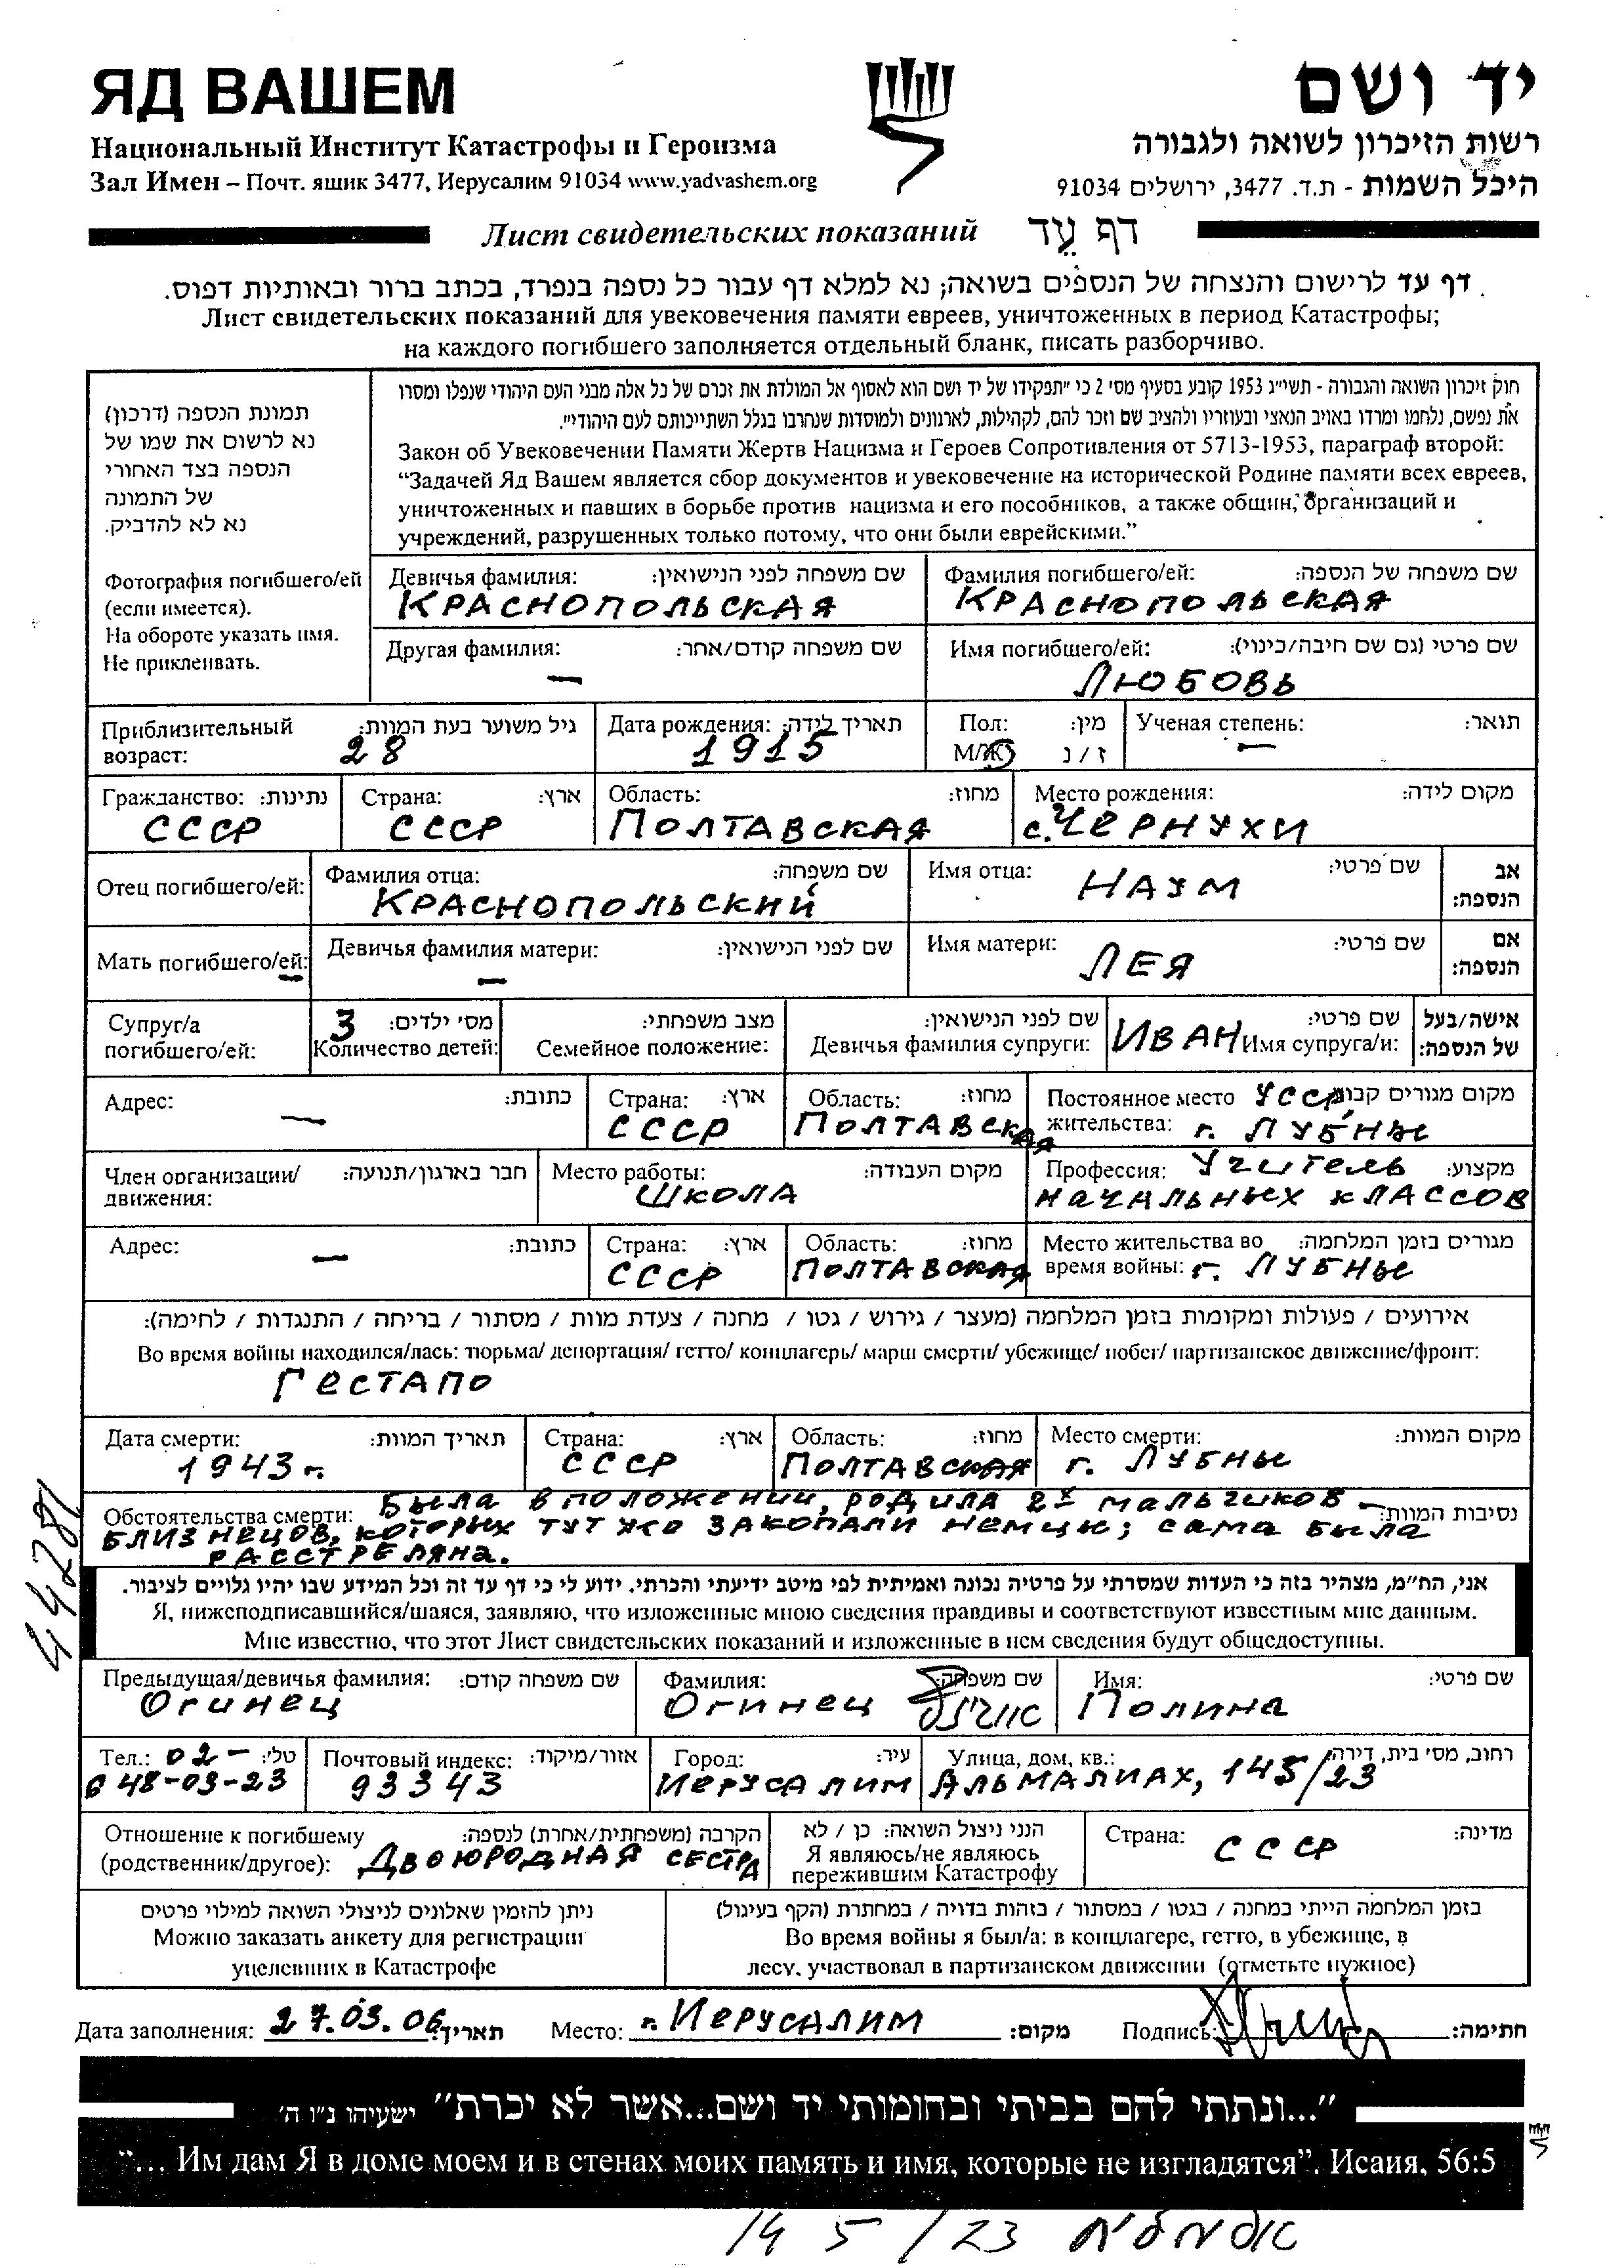 ЯД ВАШЕМ
יד ושם
Национальный Институт Катастрофы и Героизма
רשות הזיכרון לשואה ולגבורה
Зал Имен – Почт. ящик 3477, Иерусалим 91034 www.yadvashem.org
היכל השמות - ת.ד. 3477, ירושלים 91034
Лист свидетельских показаний דף עֵד
דף עד לרישום והנצחה של הנספים בשואה; נא למלא דף עבור כל נספה בנפרד, בכתב ברור ובאותיות דפוס.
Лист свидетельских показаний для увековечения памяти евреев, уничтоженных в период Катастрофы;
на каждого погибшего заполняется отдельный бланк, писать разборчиво.
תמונת הנספה (דרכון)
נא לרשום את שמו של
הנספה בצד האחורי
של התמונה
נא לא להדביק.
Фотография погибшего/ей
(если имеется).
На обороте указать имя.
Не приклеивать.
חוק זיכרון השואה והגבורה - תשי״ג 1953 קובע בסעיף מס׳ 2 כי ״תפקידו של יד ושם הוא לאסוף אל המולדת את זכרם של כל אלה מבני העם היהודי שנפלו ומסרו
את נפשם, נלחמו ומרדו באויב הנאצי ובעוזריו ולהציב שם וזכר להם, לקהילות, לארגונים ולמוסדות שנחרבו בגלל השתייכותם לעם היהודי״.
Закон об Увековечении Памяти Жертв Нацизма и Героев Сопротивления от 5713-1953, параграф второй:
“Задачей Яд Вашем является сбор документов и увековечение на исторической Родине памяти всех евреев,
уничтоженных и павших в борьбе против нацизма и его пособников, а также общин, организаций и
учреждений, разрушенных только потому, что они были еврейскими.”
Девичья фамилия: שם משפחה לפני הנישואין:
КРАСНОПОЛЬСКАЯ
Фамилия погибшего/ей: שם משפחה של הנספה:
КРАСНОПОЛЬСКАЯ
Другая фамилия: שם משפחה קודם/אחר:
—
Имя погибшего/ей: שם פרטי (גם שם חיבה/כינוי):
ЛЮБОВЬ
Приблизительный возраст: גיל משוער בעת המוות:
28
Дата рождения: תאריך לידה:
1915
Пол: מין:
М/Ж ז / נ
Ученая степень: תואר:
—
Гражданство: נתינות:
СССР
Страна: ארץ:
СССР
Область: מחוז:
ПОЛТАВСКАЯ
Место рождения: מקום לידה:
с. ЧЕРНУХИ
Отец погибшего/ей:
Фамилия отца: שם משפחה:
КРАСНОПОЛЬСКИЙ
Имя отца: שם פרטי:
НАУМ
אב הנספה:
Мать погибшего/ей:
Девичья фамилия матери: שם לפני הנישואין:
—
Имя матери: שם פרטי:
ЛЕЯ
אם הנספה:
Супруг/а погибшего/ей:
3 מס׳ ילדים:
Количество детей:
מצב משפחתי:
Семейное положение:
שם לפני הנישואין:
Девичья фамилия супруги:
שם פרטי:
ИВАН Имя супруга/и:
אישה/בעל של הנספה:
Адрес: כתובת:
—
Страна: ארץ:
СССР
Область: מחוז:
ПОЛТАВСКАЯ
Постоянное место жительства: מקום מגורים קבוע:
УССР,
г. ЛУБНЫ
Член организации/ движения: חבר בארגון/תנועה:
Место работы: מקום העבודה:
ШКОЛА
Профессия: מקצוע:
УЧИТЕЛЬ
НАЧАЛЬНЫХ КЛАССОВ
Адрес: כתובת:
—
Страна: ארץ:
СССР
Область: מחוז:
ПОЛТАВСКАЯ
Место жительства во время войны: מגורים בזמן המלחמה:
г. ЛУБНЫ
אירועים / פעולות ומקומות בזמן המלחמה (מעצר / גירוש / גטו / מחנה / צעדת מוות / מסתור / בריחה / התנגדות / לחימה):
Во время войны находился/лась: тюрьма/ депортация/ гетто/ концлагерь/ марш смерти/ убежище/ побег/ партизанское движение/фронт:
ГЕСТАПО
Дата смерти: תאריך המוות:
1943 г.
Страна: ארץ:
СССР
Область: מחוז:
ПОЛТАВСКАЯ
Место смерти: מקום המוות:
г. ЛУБНЫ
Обстоятельства смерти: נסיבות המוות:
БЫЛА В ПОЛОЖЕНИИ, РОДИЛА 2х МАЛЬЧИКОВ –
БЛИЗНЕЦОВ, КОТОРЫХ ТУТ ЖЕ ЗАКОПАЛИ НЕМЦЫ; САМА БЫЛА
РАССТРЕЛЯНА.
44281
אני, הח״מ, מצהיר בזה כי העדות שמסרתי על פרטיה נכונה ואמיתית לפי מיטב ידיעתי והכרתי. ידוע לי כי דף עד זה וכל המידע שבו יהיו גלויים לציבור.
Я, нижеподписавшийся/шаяся, заявляю, что изложенные мною сведения правдивы и соответствуют известным мне данным.
Мне известно, что этот Лист свидетельских показаний и изложенные в нем сведения будут общедоступны.
Предыдущая/девичья фамилия: שם משפחה קודם:
Огинец
Фамилия: שם משפחה:
Огинец
Имя: שם פרטי:
Полина
Тел.: 02- טל׳:
648-03-23
Почтовый индекс: אזור/מיקוד:
93343
Город: עיר:
ИЕРУСАЛИМ
Улица, дом, кв.: רחוב, מס׳ בית, דירה:
АЛЬМАЛИАХ, 145/23
Отношение к погибшему (родственник/другое): הקרבה (משפחתית/אחרת) לנספה:
ДВОЮРОДНАЯ СЕСТРА
הנני ניצול השואה: כן / לא
Я являюсь/не являюсь
пережившим Катастрофу
Страна: מדינה:
СССР
ניתן להזמין שאלונים לניצולי השואה למילוי פרטים
Можно заказать анкету для регистрации
уцелевших в Катастрофе
בזמן המלחמה הייתי במחנה / בגטו / במסתור / בזהות בדויה / במחתרת (הקף בעיגול)
Во время войны я был/а: в концлагере, гетто, в убежище, в
лесу, участвовал в партизанском движении (отметьте нужное)
Дата заполнения: 27.03.06 תאריך: Место: г. ИЕРУСАЛИМ מקום: Подпись: חתימה:
”...ונתתי להם בביתי ובחומותי יד ושם...אשר לא יכרת“ ישעיהו נ״ו ה׳
“... Им дам Я в доме моем и в стенах моих память и имя, которые не изгладятся”. Исаия, 56:5
145/23